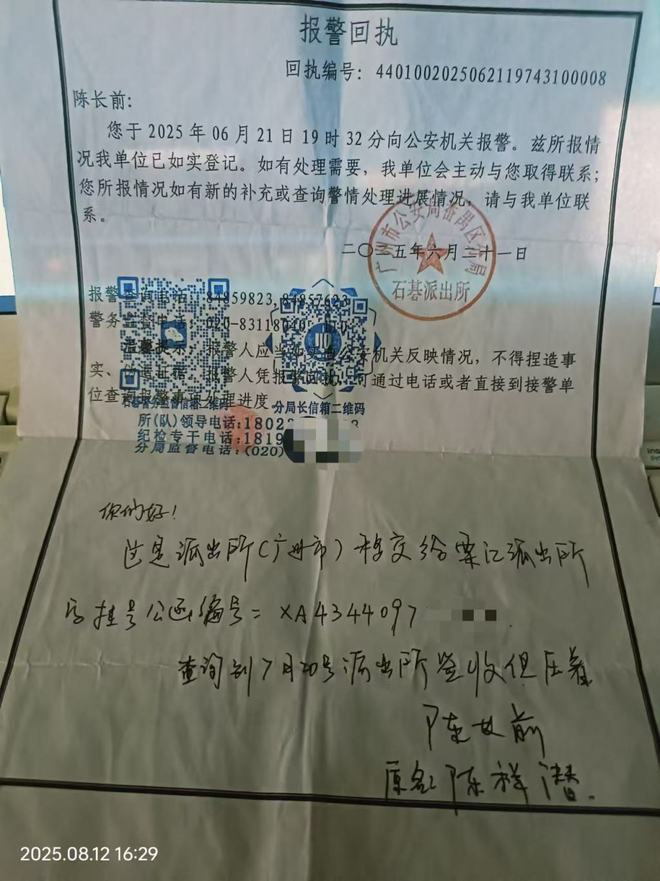 报警回执
回执编号：4401002025062119743100008
陈长前：
您于2025年06月21日19时32分向公安机关报警。兹所报情
况我单位已如实登记。如有处理需要，我单位会主动与您取得联系；
您所报情况如有新的补充或查询警情处理进展情况，请与我单位联
系。
广州市公安局番禺区分局
石基派出所
二〇二五年六月二十一日
报警查询电话：84859823,84857623
警务监督电话：020-83118040
报警人应当如实向公安机关反映情况，不得捏造事
实、报警人凭报警回执，可通过电话或者直接到接警单
位查询报警事项处理进度
分局长信箱二维码
所(队)领导电话:1802
纪检专干电话:1819
分局监督电话:(020)
你们好！
这是派出所(广州市)移交给栗江派出所
的挂号公函编号=XA4344097
查询到7月20号派出所签收但压着
陈长前
原名陈祥潜.
2025.08.12 16:29